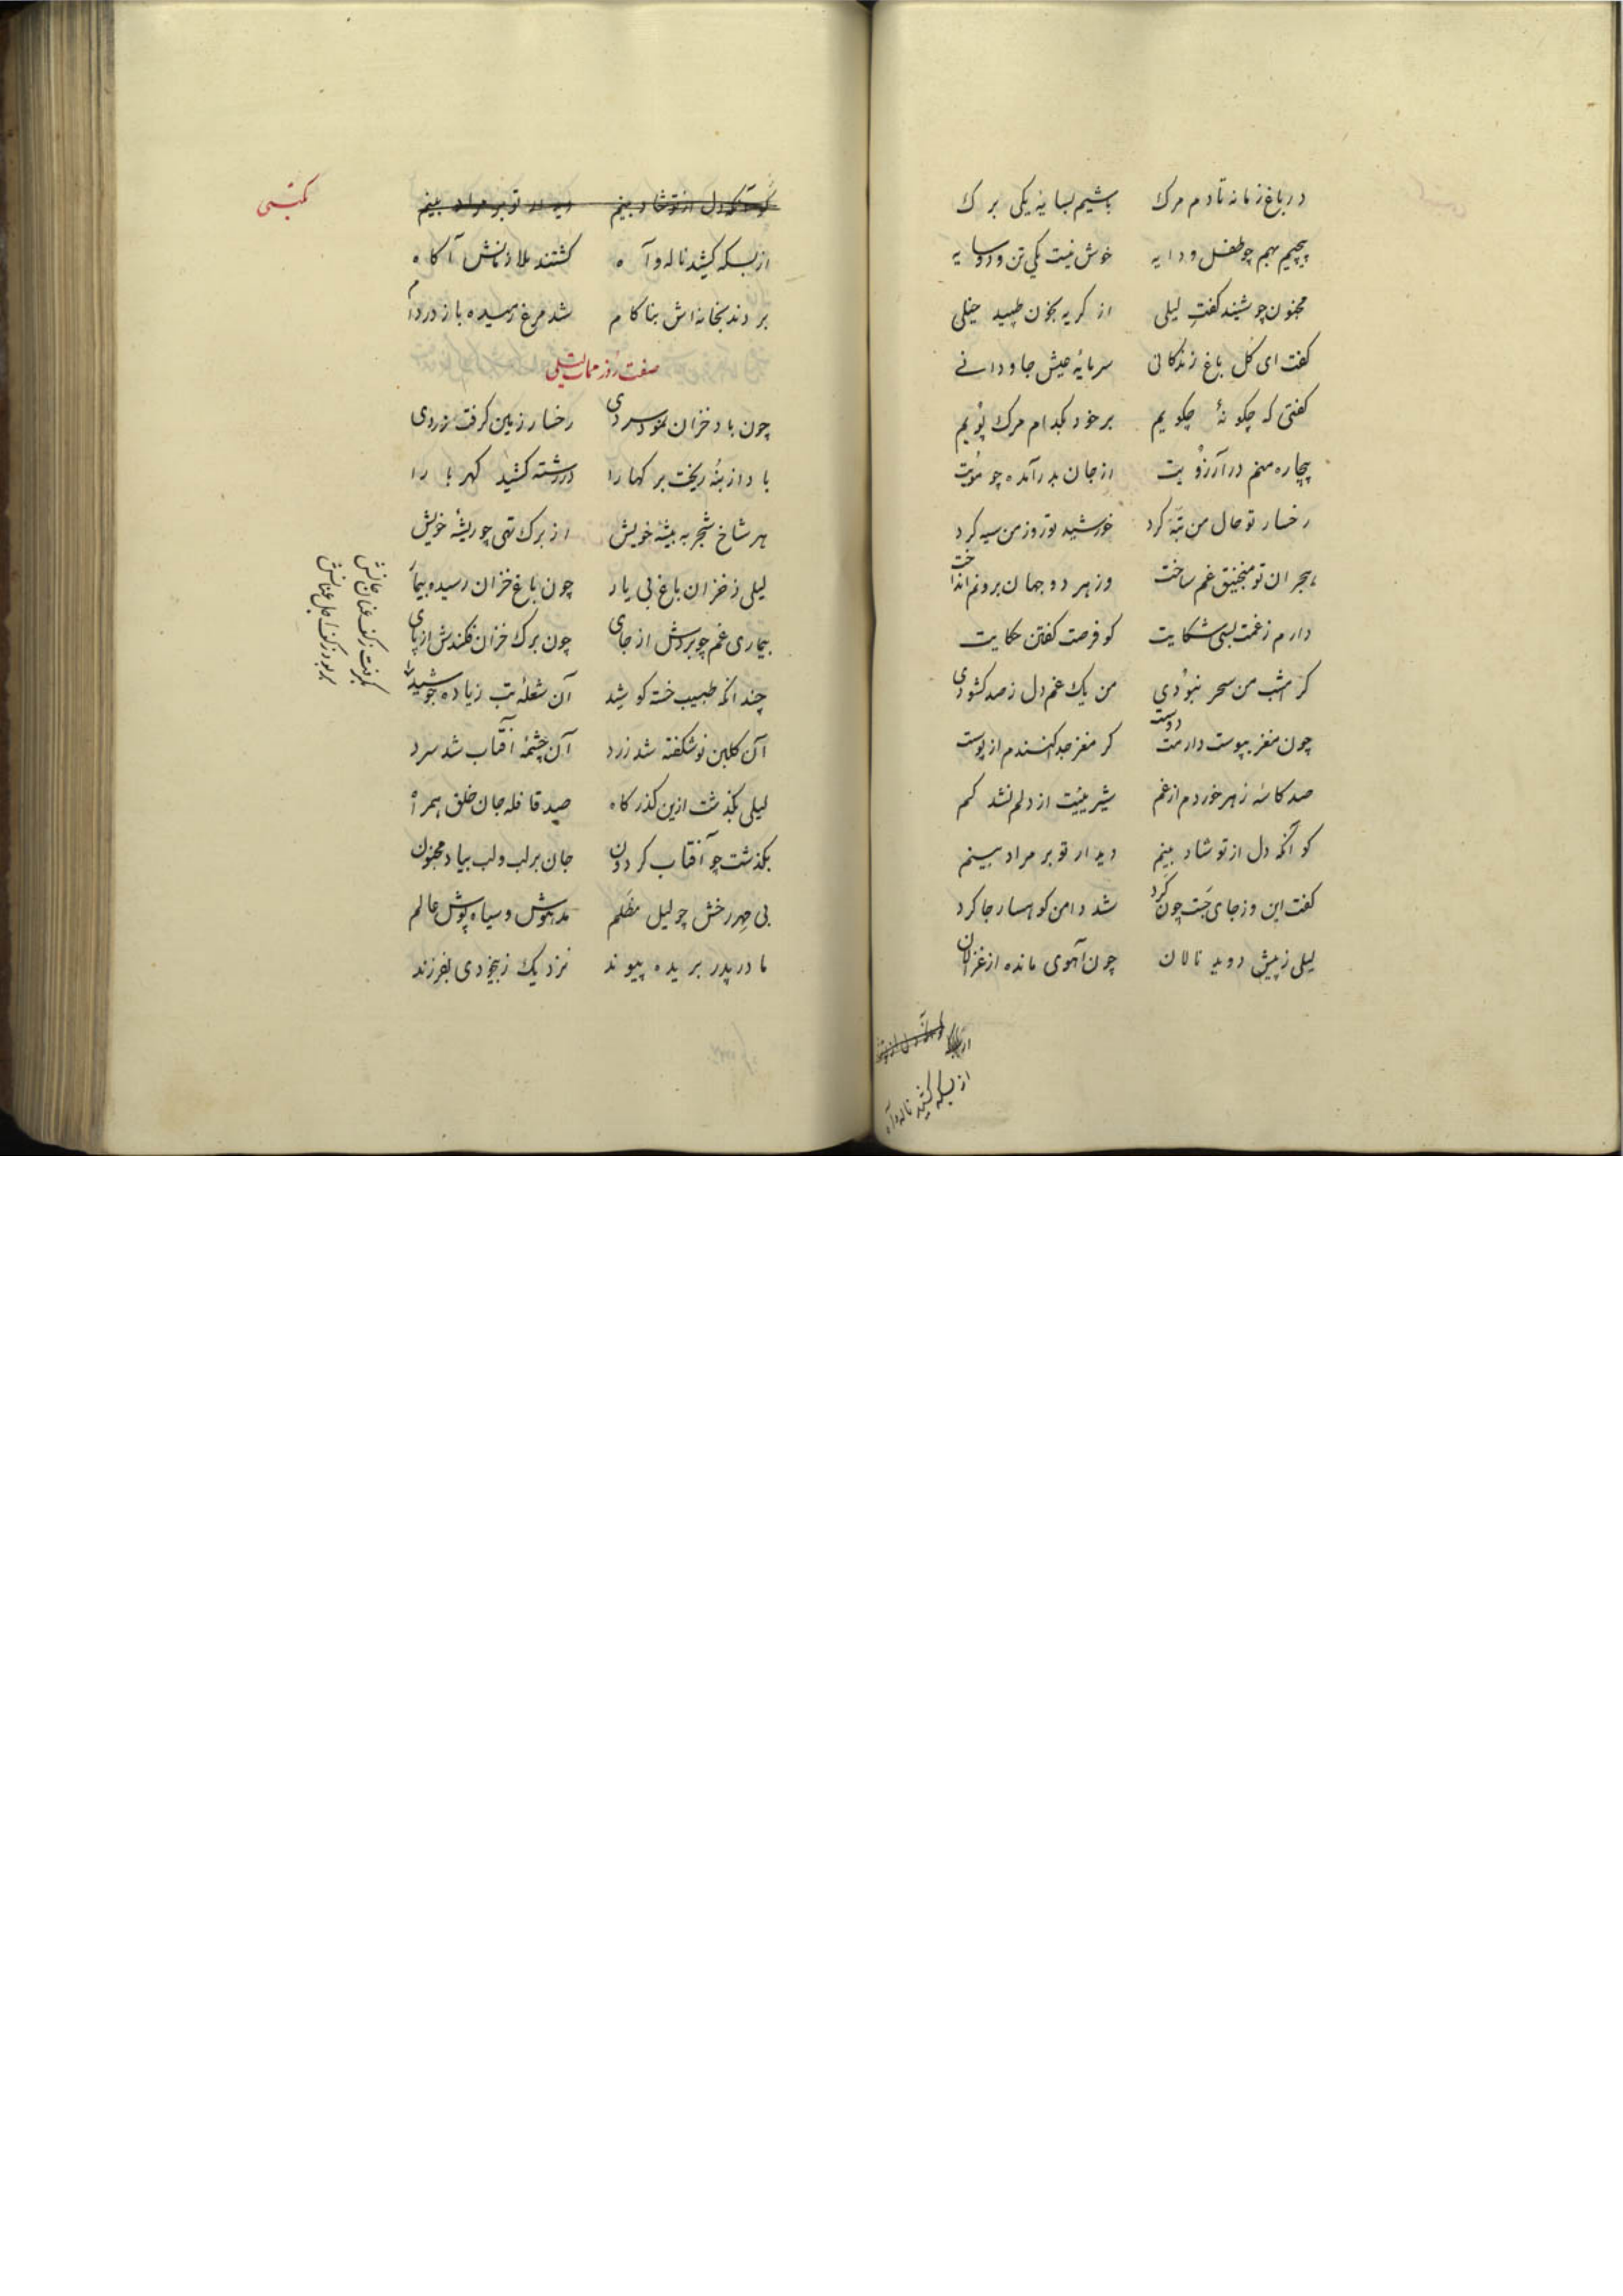 در باغ زمانه تا دم مرک باشیم بسایه یکی برک
پیچیم بهم چو طفل و دایه خوش نیست یکی تن و دو سایه
مجنون چو شنید کفتِ لیلی از کریه بخون طپید خیلی
کفت ای کل باغ زندکانی سرمایه عیش جاودانے
کفتی که چکونهٔ چکویم بر خود بکدام مرک پویم
بیچاره منم در آرزویت از جان بدر آمده چو مویت
رخسار تو حال من تبه کرد خورشید تو روز من سیه کرد
هجران تو منجنیق غم ساخت وز هر دو جهان برونم انداخت
دارم ز غمت بسی شکایت کو فرصت کفتن حکایت
کر امشب من سحر نبودی من یک غم دل ز صد کشودی
چون مغز بپوست دارمت دوست کر مغز جدا کنندم از پوست
صد کاسه زهر خوردم از غم شیرینیت از دلم نشد کم
کو آنکه دل از تو شاد بینم دیدار تو بر مراد بینم
کفت این و ز جای جَست چون کَرد شد دامن کوهسار جا کرد
لیلی ز پیش دوید نالان چون آهوی مانده از غزالان
کو آنکه دل از تو
از بسکه کشید ناله و آه
مکتبی
کو آنکه دل از تو شاد بینم دیدار تو بر مراد بینم
از بسکه کشید ناله و آه کشتند ملازمانش آکاه
بردند بخانه‌اش بناکام شد مرغ رمیده باز در دام
صفت روز ممات لیلی
چون باد خزان نمود سردی رخسار زمین کرفت زردی
باد از بنه ریخت برکها را در رشته کشید کهربا را
هر شاخ شجر به بیشهٔ خویش از برک تهی چو ریشهٔ خویش
لیلی ز خزان باغ بی یار چون باغ خزان رسیده بیمار
بیماری غم چو بردش از جای چون برک خزان فکندش از پای
چندانکه طبیب خسته کوشید آن شعلهٔ تب زیاده جوشید
آن کلبن نوشکفته شد زرد آن چشمهٔ آفتاب شد سرد
لیلی بکذشت ازین کذرکاه صد قافله جان خلق همراه
بکذشت چو آفتاب کردون جان بر لب و لب بیاد مجنون
بی مهر رخش چو لیل مظلم مدهوش و سیاه پوش عالم
مادر پدر بریده پیوند نزدیک ز بیخودی بفرزند
بکرفت ز کف عنان
بربود ز کف اجل عنانش